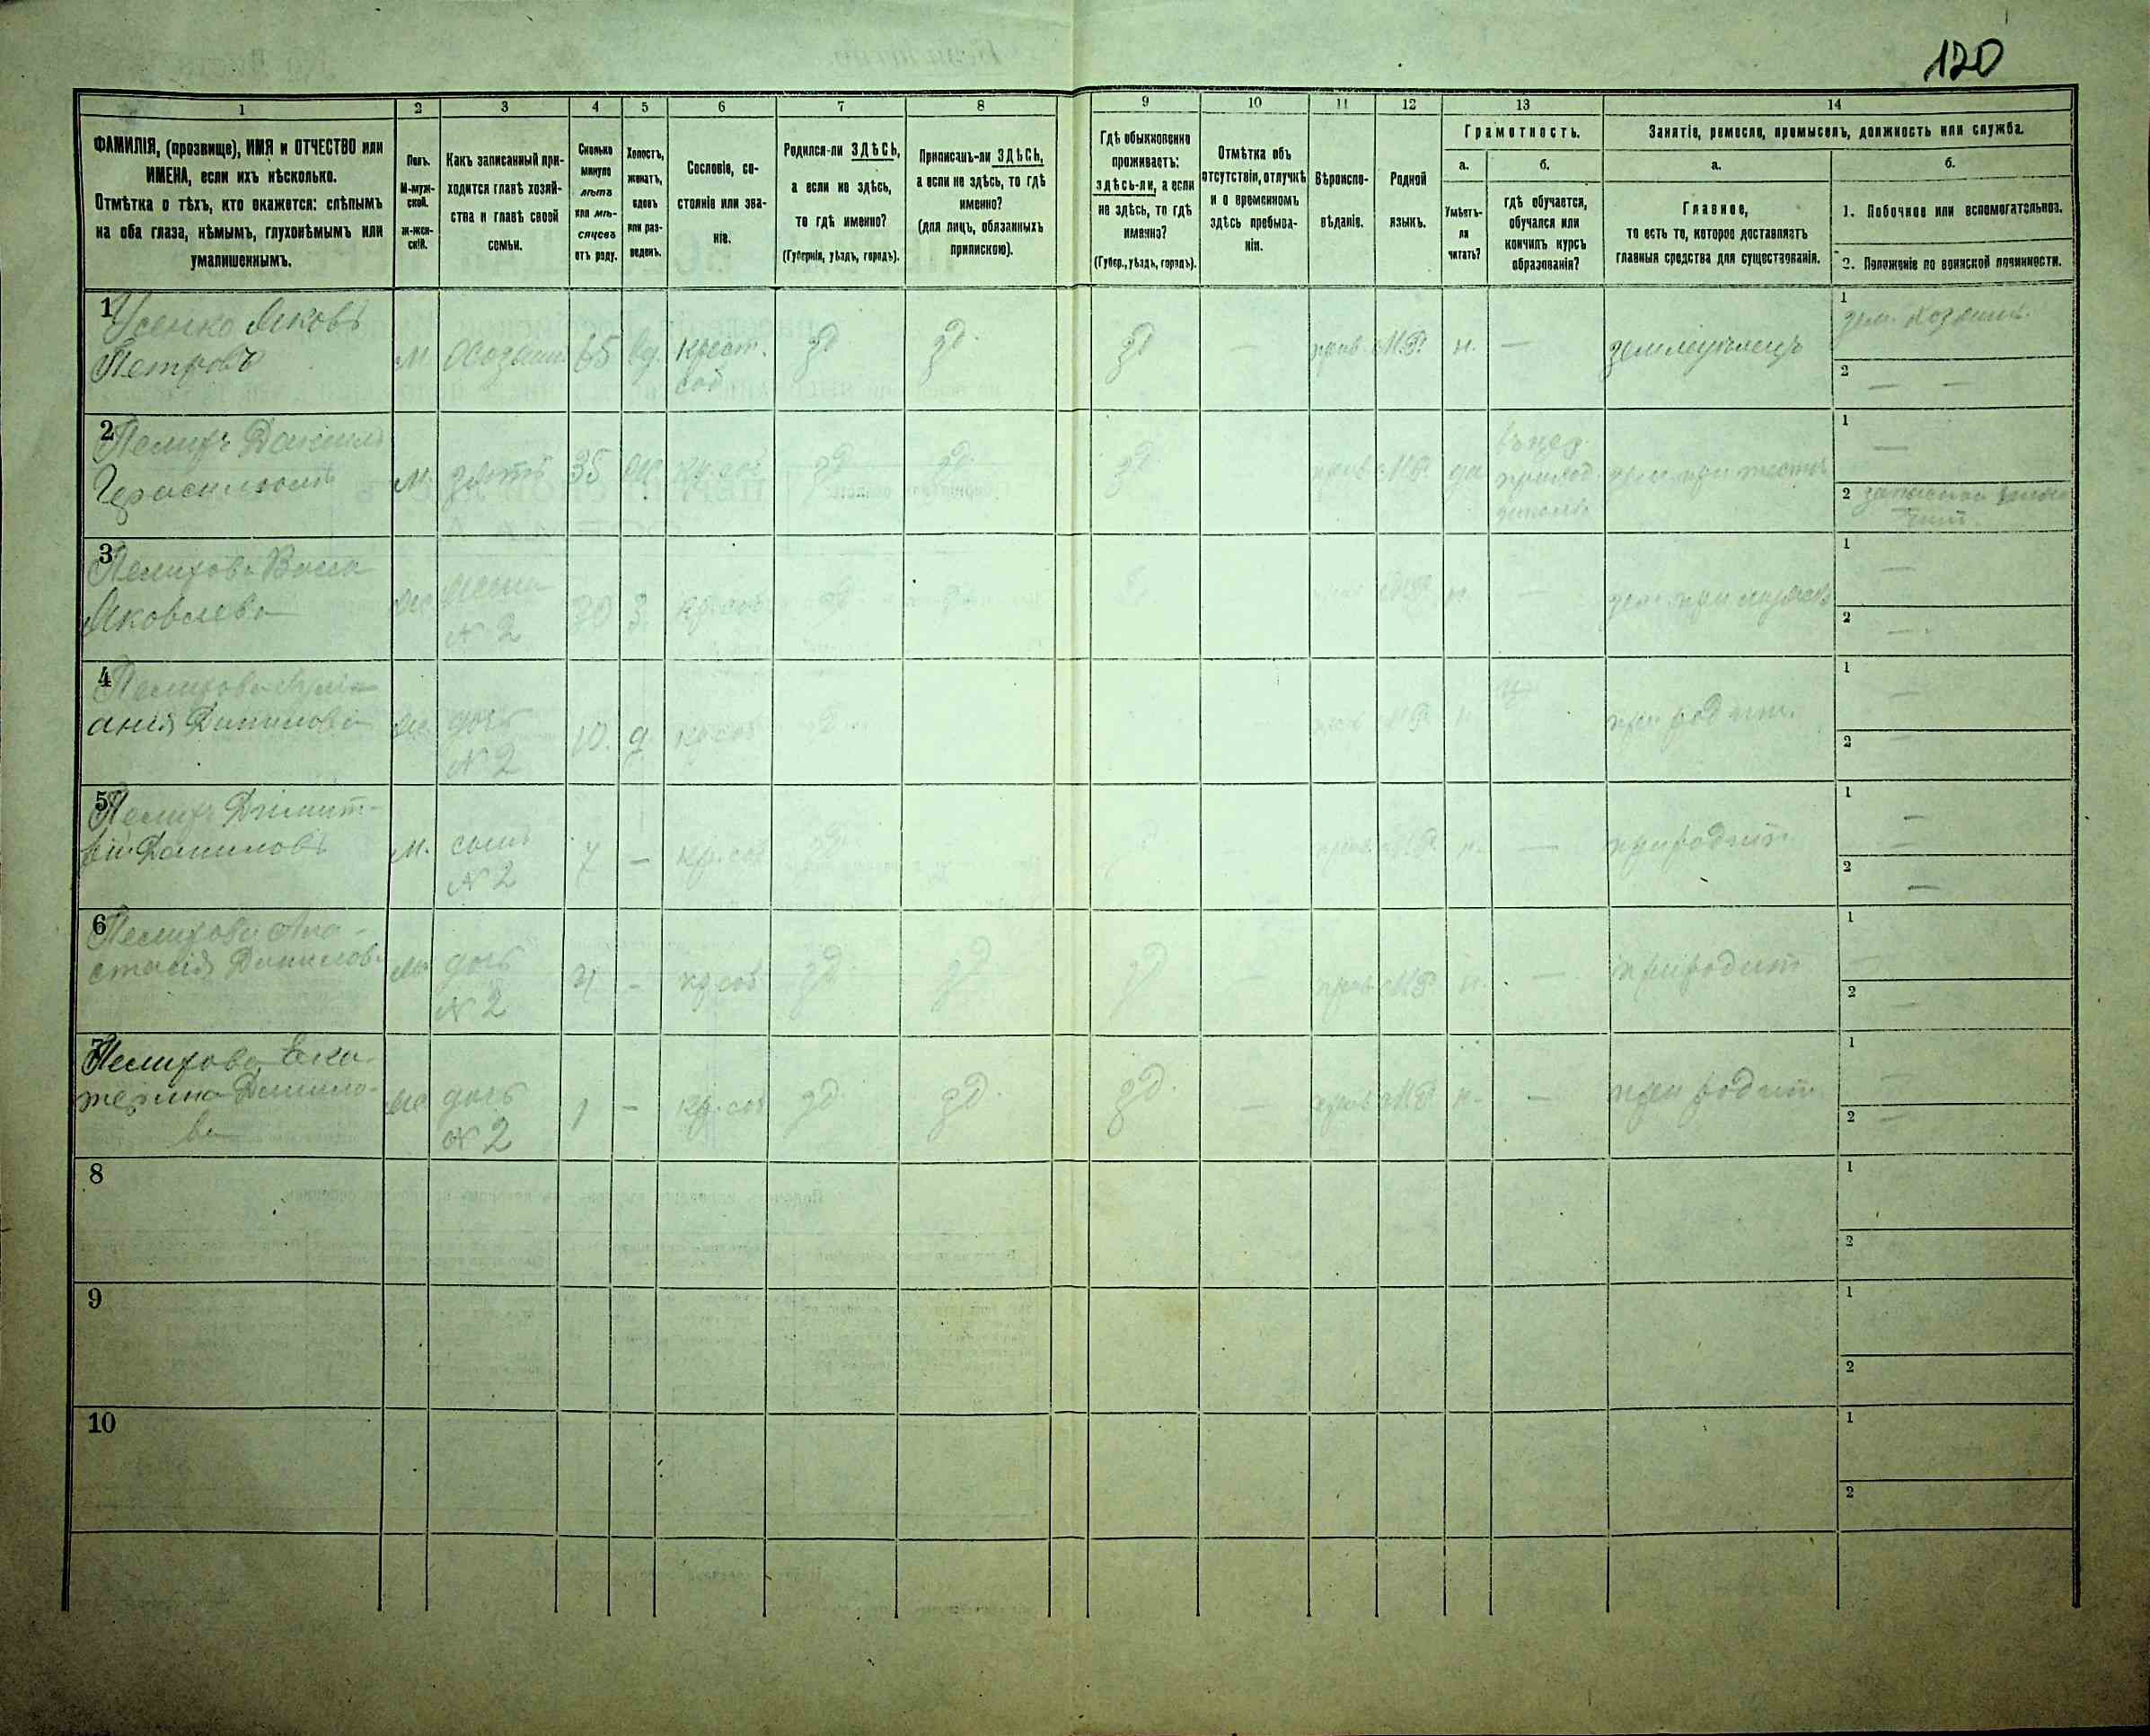 120
1
2
3
4
5
6
7
8
9
10
11
12
13
14
ФАМИЛІЯ, (прозвище), ИМЯ и ОТЧЕСТВО или
ИМЕНА, если ихъ нѣсколько.
Отмѣтка о тѣхъ, кто окажется: слѣпымъ
на оба глаза, нѣмымъ, глухонѣмымъ или
умалишеннымъ.
Полъ.
М-муж-
ской.
Ж-жен-
скій.
Какъ записанный при-
ходится главѣ хозяй-
ства и главѣ своей
семьи.
Сколько
минуло
лѣтъ
или мѣ-
сяцевъ
отъ роду.
Холостъ,
женатъ,
вдовъ
или раз-
веденъ.
Сословіе, со-
стояніе или зва-
ніе.
Родился-ли ЗДѢСЬ,
а если не здѣсь,
то гдѣ именно?
(Губернія, уѣздъ, городъ).
Приписанъ-ли ЗДѢСЬ,
а если не здѣсь, то гдѣ
именно?
(для лицъ, обязанныхъ
припискою).
Гдѣ обыкновенно
проживаетъ:
здѣсь-ли, а если
не здѣсь, то гдѣ
именно?
(Губер., уѣздъ, городъ).
Отмѣтка объ
отсутствіи, отлучкѣ
и о временномъ
здѣсь пребыва-
ніи.
Вѣроиспо-
вѣданіе.
Родной
языкъ.
Грамотность.
а.
Умѣетъ-
ли
читать?
б.
гдѣ обучается,
обучался или
кончилъ курсъ
образованія?
Занятіе, ремесло, промыселъ, должность или служба.
а.
Главное,
то есть то, которое доставляетъ
главныя средства для существованія.
б.
1. Побочное или вспомогательное.
2. Положеніе по воинской повинности.
1
Усенко Яковъ
Петровъ
м. 65 вд. крест. зд. зд. зд — прав. М.Р. н. — земледѣлецъ
соб
1
2 — —
2
Пелихъ Данило
м. зять 35 ж кр. соб зд зд. зд. — прав. М.Р. да
1 —
2
3
Пелихова
Яковлева
ж жена 30 з. кр. соб. зд зд н. —
№ 2
1 —
2 —
4
Пелихова
Данилова
ж дочь 10. д кр соб зд. н. при родит.
№ 2
1 —
2 —
5
Пелихъ Димит-
рій Даниловъ
м. сынъ 7 — кр. соб зд. прав М.Р. н. — при родит.
№ 2
1 —
2 —
6
Пелихова Ана-
стасія Данилов
ж дочь 4 - кр соб зд зд зд — прав М.Р. н. — при родит
№ 2
1 —
2 —
7
Пелихова Ека-
терина Данило-
ва
ж дочь 1 — кр. соб зд. зд. зд. — прав М.Р. н. — при родит.
№ 2
1 —
2 —
8
1
2
9
1
2
10
1
2